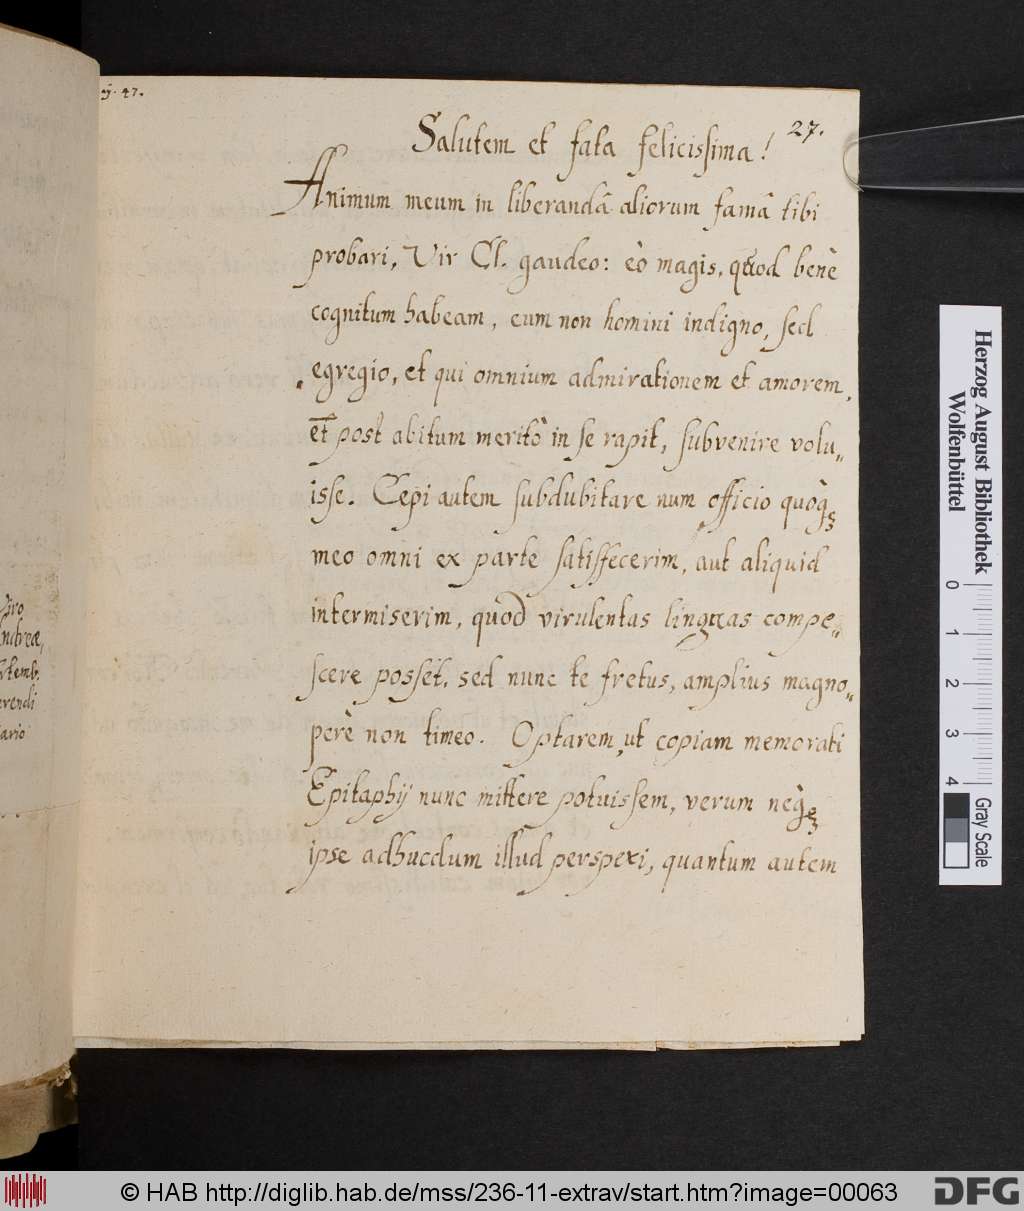 47.
27.
Salutem et fata felicissima!
Animum meum in liberandâ aliorum famâ tibi
probari, Vir Cl. gaudeo: eò magis, quod benè
cognitum habeam, eum non homini indigno, sed
egregio, et qui omnium admirationem et amorem,
et post abitum meritò in se rapit, subvenire volu„
isse. Cepi autem subdubitare num officio quòq₃
meo omni ex parte satisfecerim, aut aliquid
intermiserim, quod virulentas linguas compe„
scere posset, sed nunc te fretus, amplius magno„
perè non timeo. Optarem, ut copiam memorati
Epitaphij nunc mittere potuissem, verum nèq₃
ipse adhucdum illud perspexi, quantum autem
Viro
Andreæ,
ario
Herzog August Bibliothek
Wolfenbüttel
0 1 2 3 4
Gray Scale
© HAB http://diglib.hab.de/mss/236-11-extrav/start.htm?image=00063
DFG